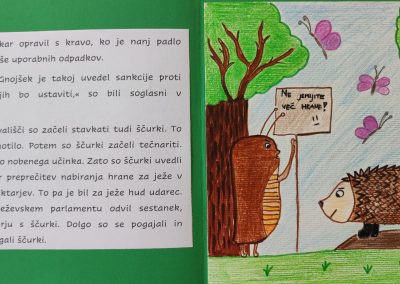 kar opravil s kravo, ko je nanj padlo
še uporabnih odpadkov.
Gnojšek je takoj uvedel sankcije proti
jih bo ustaviti,« so bili soglasni v
vališči so začeli stavkati tudi ščurki. To
notilo. Potem so ščurki začeli tečnariti.
o nobenega učinka. Zato so ščurki uvedli
r preprečitev nabiranja hrane za ježe v
ktarjev. To pa je bil za ježe hud udarec.
eževskem parlamentu odvil sestanek,
rju s ščurki. Dolgo so se pogajali in
gali ščurki.
NE JEMLJITE
VEČ HRANE!